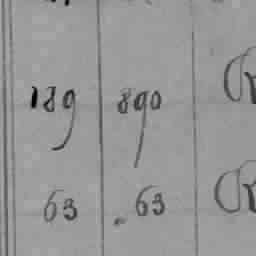 189 890
63 . 63